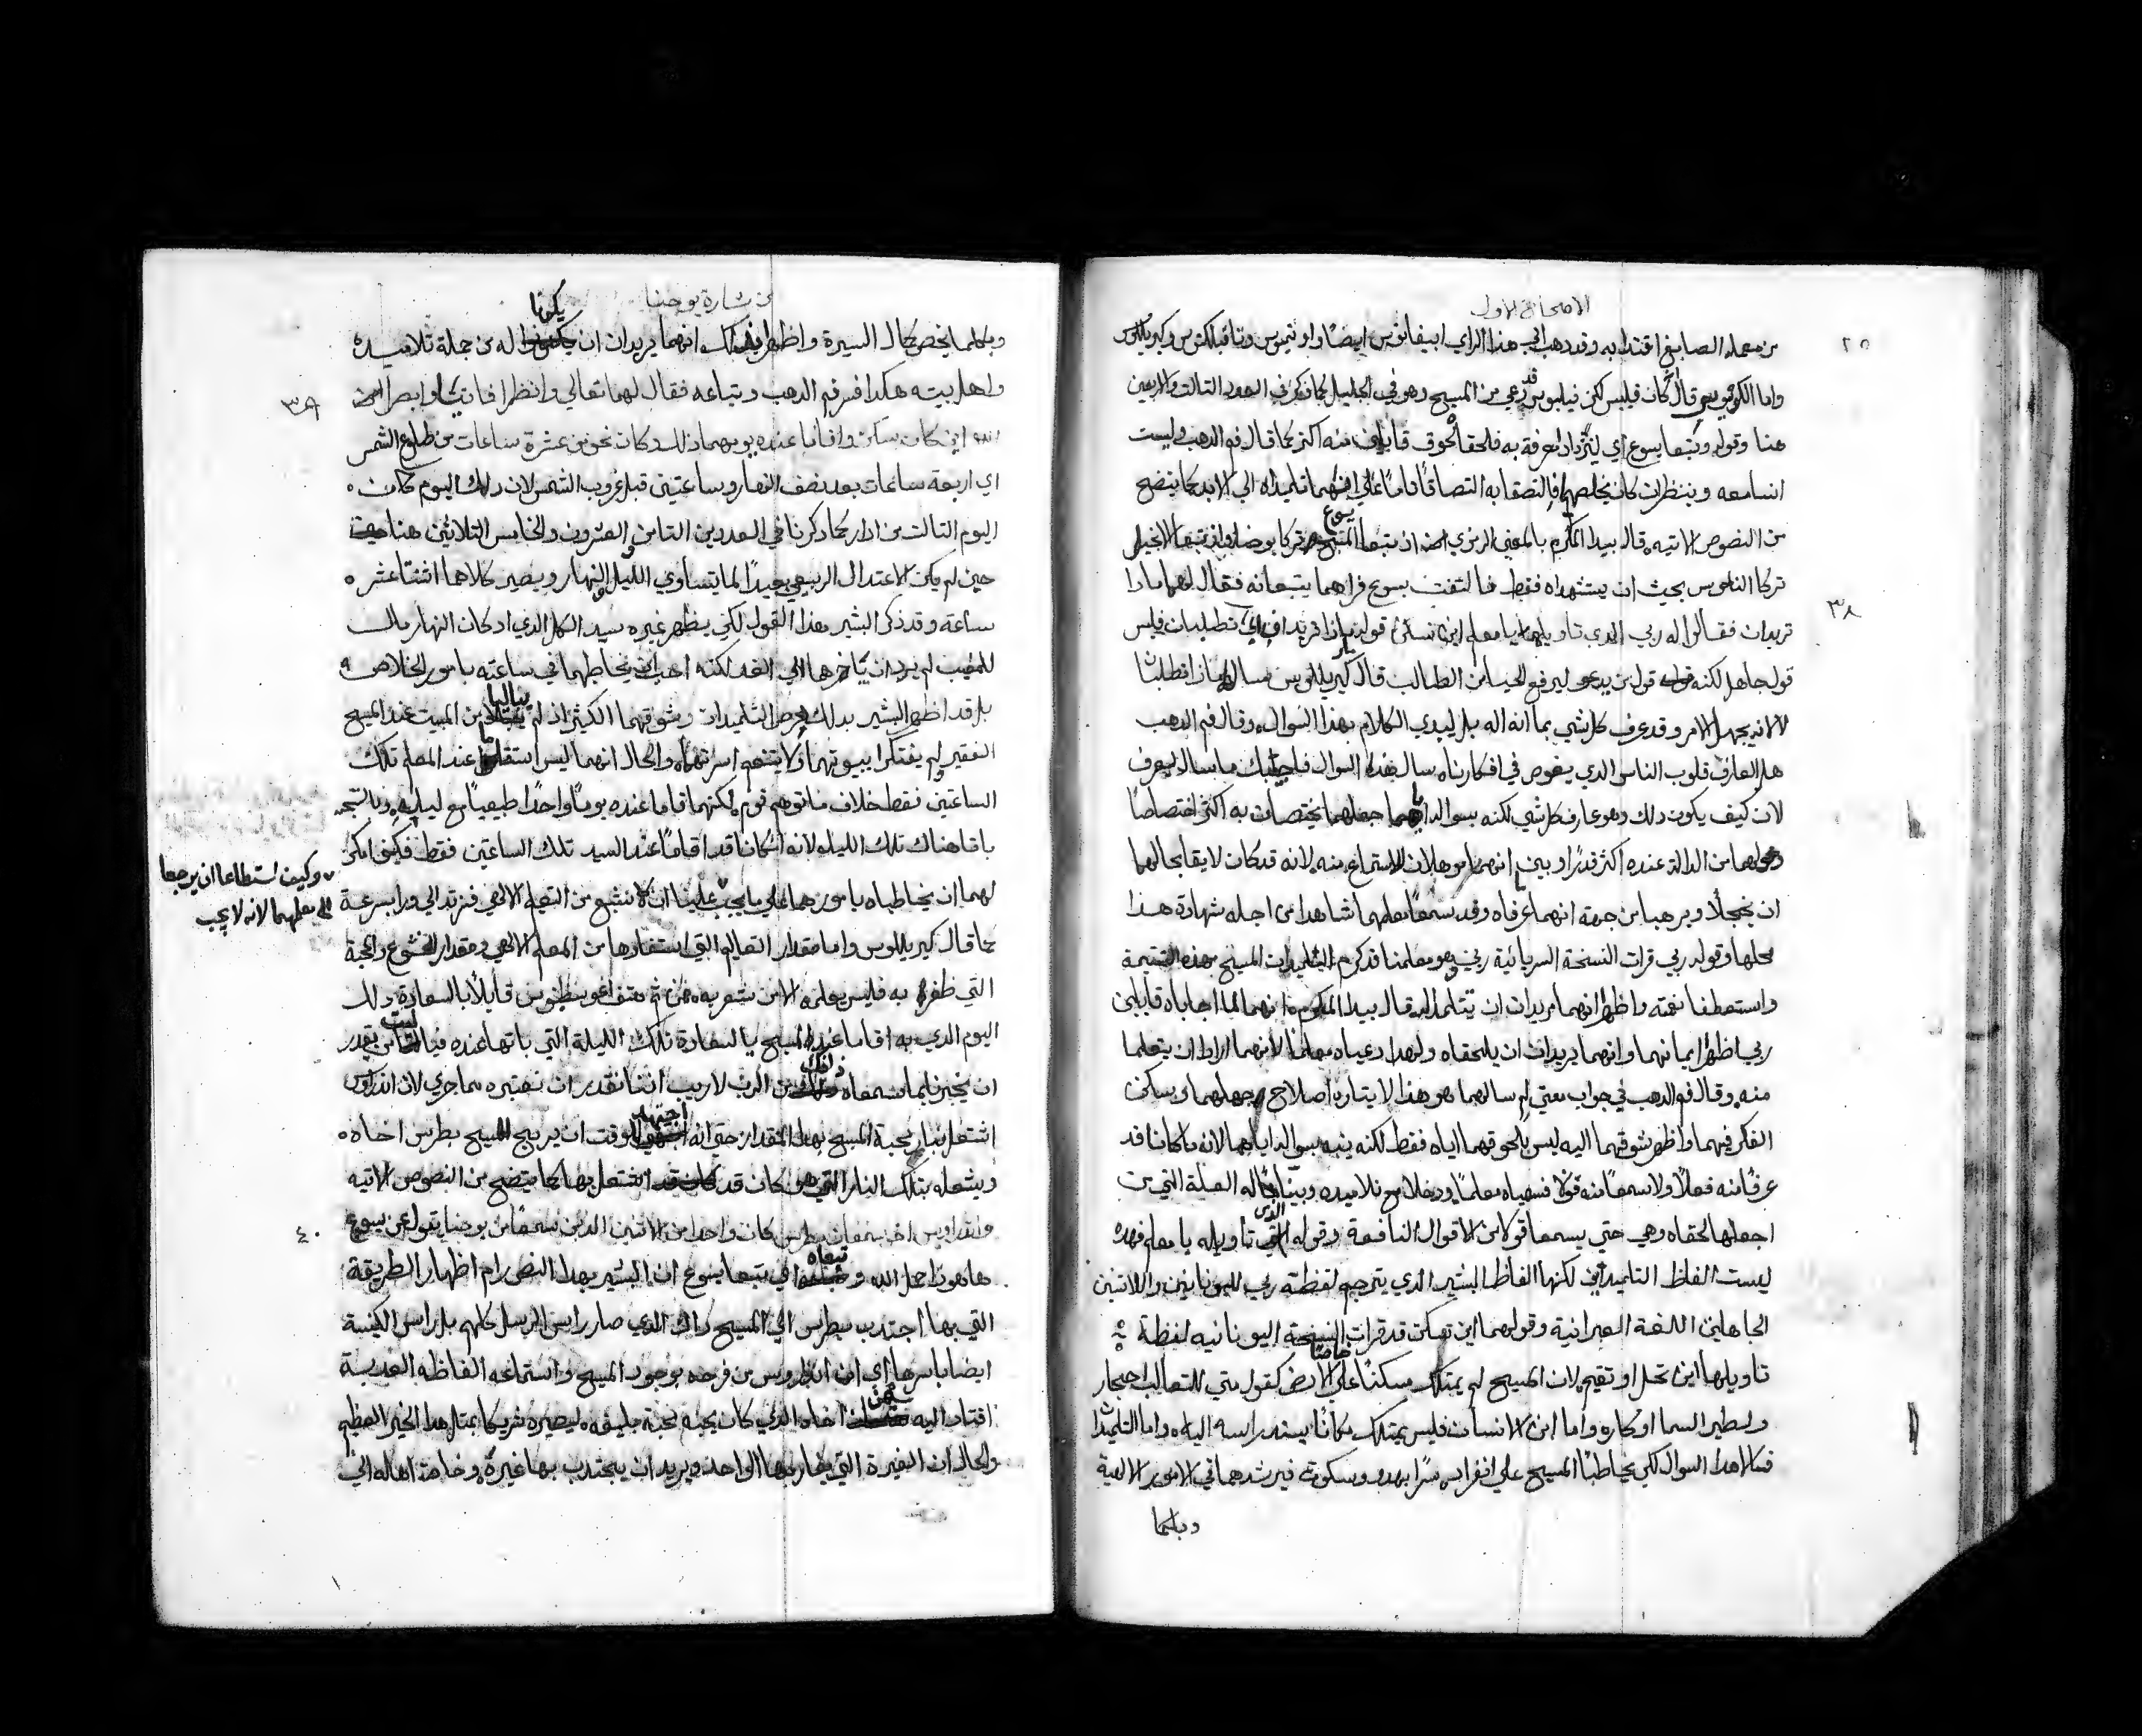 الاصحاح الاول
٢٥
من معمله الصابغ اقتدا به وقد دهب الي هذا الراي ابيفانوس ايضًا واوتيموس وكيريللوس
واما الكرنوس قال كان فيلبس لكن فيلبوس قد دعي من المسيح وهو في الجليل كما ذكر في العدد التالت والاربعين
هنا وقوله وتبعا يسوع اي ليزدادا معرفة به فلحقا لحوق قابلين منه اكتر كما قال فم الدهب وليست
انسا معه وينتظرات كان يخلصهما فالتصقا به التصاقًا دامًا علي انهما تلميداه الي الابد كما يتضح
من النصوص الاتيه قال بيدا المكرم بالمعني الرمزي ان تبعا يسوع تركا يوحنا واذ تبعا الانجيل
تركا الناموس بحيث ان يستشهداه فقط فالتفت يسوع فراهما يتبعانه فقال لهما مادا
٣٨
تريدان فقالوا له ربي الدي تاويلها يا معلم اين تسكن قوله مادا تريدان اي تطلبان فليس
قول جاهل لكنه قول من يدعو ليرفع الحيا من الطالب قال كيريللوس سالهما ماذا تطلبا
لا لانه يجهل الامر وقد عرف كل شي بما انه اله بل ليبدي الكلام بهذا السوال وقال فم الدهب
هل العارف قلوب الناس الدي يغوص في افكارنا سال هذا السوال فاجيبك ما سال ليعرف
لان كيف يكون دلك وهو عارف كل شي لكنه بسواله اياهما جعلهما يختصان به اكتر اختصاصًا
وخولهما من الدالة عنده اكتر قدرًا وبين انهما موهلان للاستماع منه لانه قد كان لايقا بحالهما
ان يخجلا ويرهبا من جهة انهما ما عرفاه وقد سمعا معلمهما شاهدا من اجله شهادة هذا
محلها وقوله ربي قرات النسخة السريانية ربن وهو معلمنا قد كرم التلميدان المسيح بهذه التسمية
واستعطفا نعمته واظهرا انهما يريدان ان يتتلمدا له قال بيدا المكرم انهما لما اجاباه قايلين
ربي اظهرا ايمانهما وانهما يريدان ان يلحقاه ولهدا دعياه معلمًا لانهما ارادا ان يتعلما
منه وقال فم الدهب في جواب معني لم سالهما هو هذا لا يتاره اصلاح جهلهما اي سكن
الفكر فيهما واظهر شوقهما اليه ليس بلحوقهما اياه فقط لكنه ينبه بسواله اياهما لانه ما كانا قد
عرفا منه فعلًا ولا سمعا منه قولًا فسمياه معلمًا ودخلا مع تلاميده وبينا له العلة التي من
اجلها لحقاه وهي حتي يسمعا قولا من الاقوال النافعة وقوله الدي تاويله يا معلم فهده
ليست الفاظ التلميدين لكنها الفاظ البشير الدي يترجم لفظة ربي لليونانيين واللاتنين
الجاهلين اللغة العبرانية وقولهما اين تسكن قد قرات النسخة اليونانيه لفظة
تاويلها اين تحل او تقيم لان المسيح لم يمتلك مسكنًا خاصًا علي الارض كقول متي للتعالب احجار
ولطير السما اوكاره واما ابن الانسان فليس يمتلك مكانًا يسند راسه اليه واما التلميدا
فسالا هدا السوال لكي يخاطبا المسيح علي انفراد سرًا بهدو وسكوت فيرشدهما في الامور الالهية
وبكلما
من بشارة يوحنا
وبكلما يخص بحال السيرة واظهرا بدلك انهما يريدان ان يكونا له من جملة تلاميده
٣٩
واهل بيته هكدا فسر فم الدهب وتباعه فقال لهما تعالي وانظرا فاتيا وابصرا
اين كان يسكن واقاما عنده يومهما دلك وكان نحو من عشرة ساعات من طلوع الشمس
اي اربعة ساعات بعد نصف النهار وساعتين قبل غروب الشمس لان دلك اليوم كان
اليوم التالت من ادار كما دكرنا في العددين التامن والعشرون والخامس التلاتين هنا
حين لم يكن الاعتدال الربيعي بعيدًا لما يتساوي الليل والنهار ويصير كلاهما اثنتا عشر
ساعة وقد ذكر البشير هذا القول لكي يظهر غيرة سيد الكل الدي اد كان النهار مال
للمغيب لم يرد ان ياخرهما الي الغد لكنه احب ان يخاطبهما في ساعته بامور الخلاص
بل قد اظهر البشير بدلك حرص التلميدان وشوقهما الكثير اذ لم يباليا من المبيت عند المسيح
الفقير ولم يفتكرا ببيوتهما ولا بتنعم اسرتهما والحال انهما ليس استقاما عند المعلم تلك
الساعتين فقط خلاف ما توهم قوم لكنهما قاما عنده يومًا واحدًا طبيعيًا مع ليليه وبالنتيجه
باتا هناك تلك الليله لانه ان كانا قد اقاما عند السيد تلك الساعتين فقط فكيف امكن
لهما ان يخاطباه بامورهما علي ما يجب علينا ان لا نشبع من التعليم الالهي فنرتد الي ورا بسرعة
وكيف استطاعا ان يرجعا
الي معلمهما لانه لا يجب
كما قال كيريللوس واما مقدار التعاليم التي استفادها من المعلم الالهي ومقدار الخشوع والمحبة
التي ظفرا به فليس يعلمه الا من شعر به ومن ثم هتف اغوسطينوس قايلًا بالسعادة دلك
اليوم الدي به اقاما عند المسيح يا لسعادة تلك الليلة التي باتها عنده فياليت من يقدر
ان يخبرنا بما سمعاه دانك من الرب لا ريب اننا نقدر ان نعتبره مما جري لان اندراوس
اشتعل بنار محبة المسيح بهدا المقدار حتي انه اجتهد الوقت ان يربح المسيح بطرس اخاه
ويشعله بتلك النار التي هو كان قد اشتعل بها كما يتضح من النصوص الاتيه
٤٠
واندراوس اخو سمعان بطرس كان واحدا من الاتنين الدين سمعا من يوحنا يقول عن يسوع
هاهودا حمل الله وتبعاه اي تبعا يسوع ان البشير بهدا النص رام اظهار الطريقة
التي بها اجتدب بطرس الي المسيح داك الدي صار راس الرسل كلهم بل راس الكنيسة
ايضا باسرها اي ان اندراوس من فرحه بوجود المسيح واستماعه الفاظه العدبة
اقتاد اليه سمعن اخاه الدي كان يحبه محبة بليغه ليصيره شريكا بمتل هدا الخير العظيم
والحال ان الغيرة التي يغار بها الواحد ويريد ان يجتدب بها غيره وخاصة اهاله الي